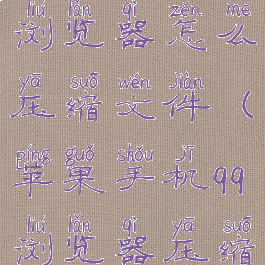 liú lǎn qì zěn me
浏览器怎么
yā suō wén jiàn
压缩文件（
píng guǒ shǒu jī
苹果手机qq
liú lǎn qì yā suō
浏览器压缩